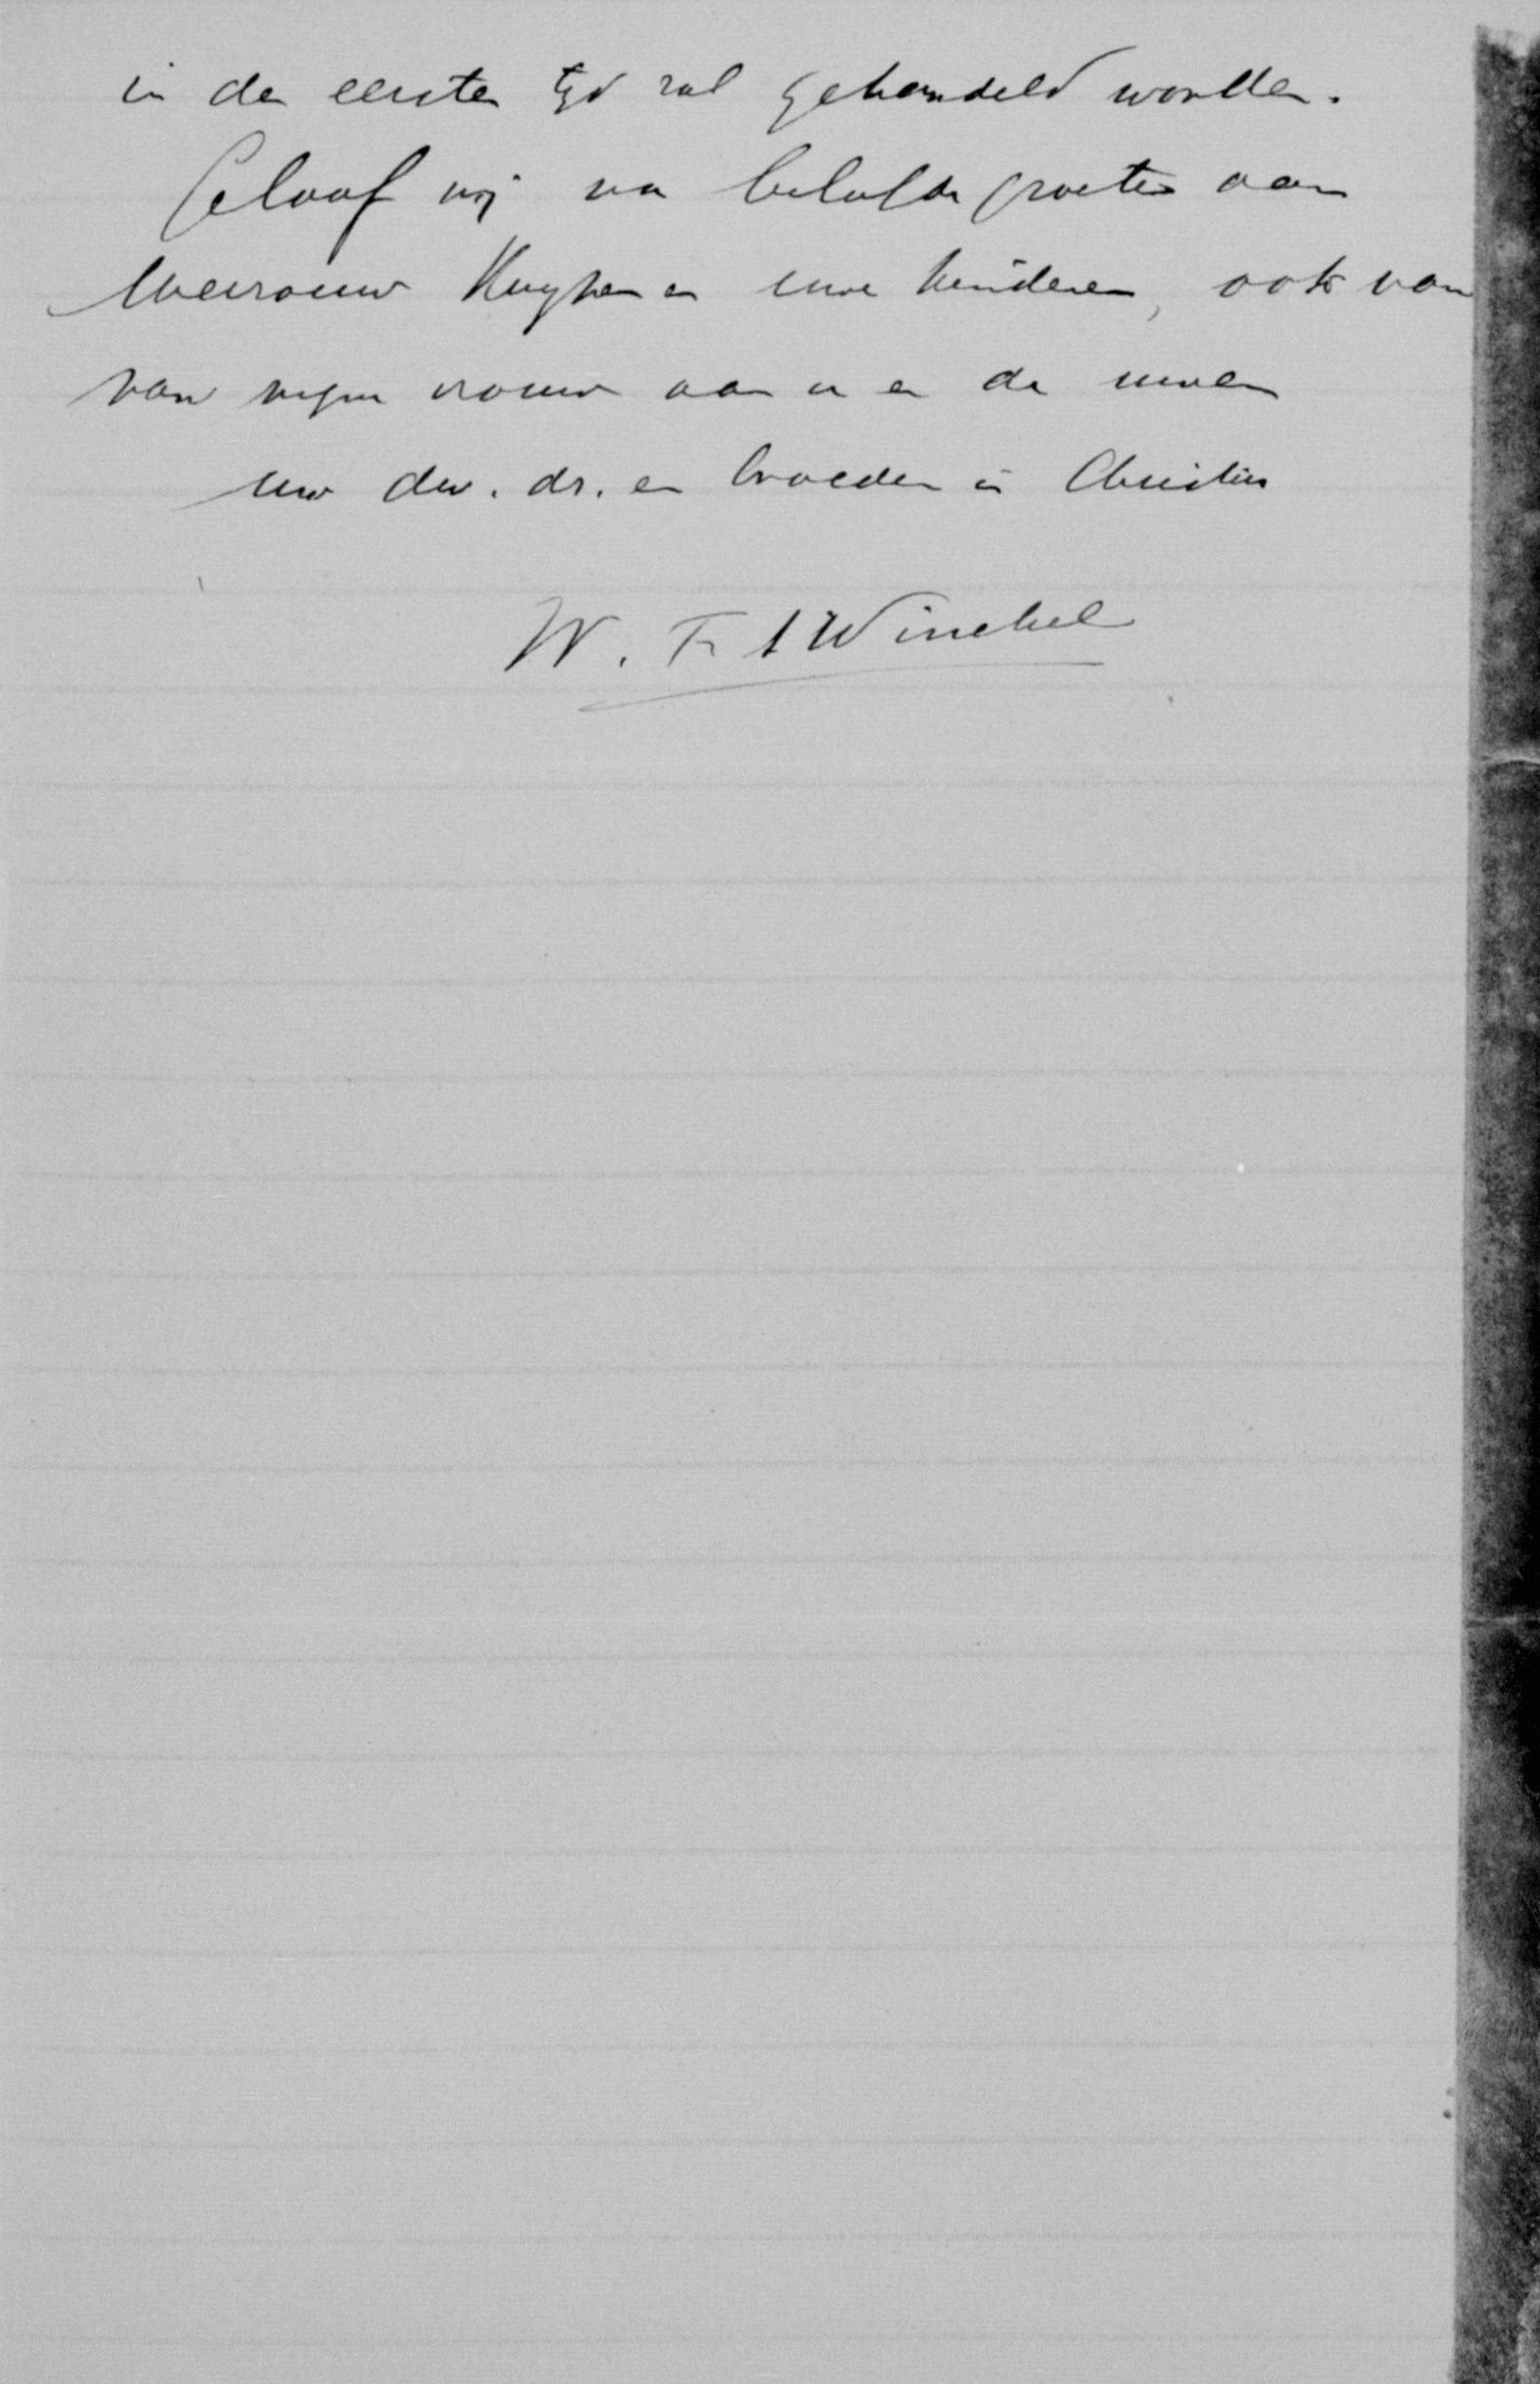 in den eersten tijd zal gehandeld worden.
Geloof mij na beleefde groeten aan
Mevrouw Kuyper en uwe kinderen, ook van
van mijne vrouw aan u en de uwen
uw dw. dr. en broeder in Christus
W. F. A Winckel